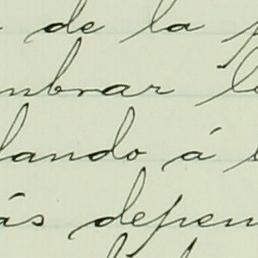 de la
mbrar
lando á
ás depen